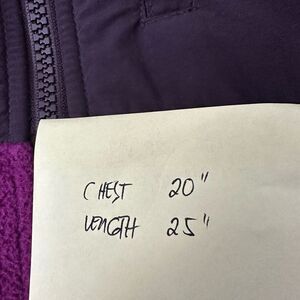 CHEST 20"
LENGTH 25"